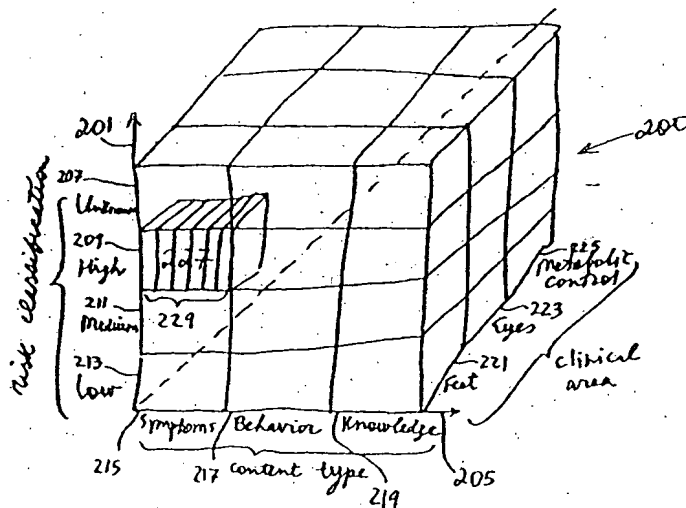 201
200
207
Unknown
209
High
227
211
Medium
229
213
Low
risk classification
225
Metabolic
control
223
Eyes
221
Feet
clinical
area
Symptoms Behavior Knowledge
215
217
content type
219
205